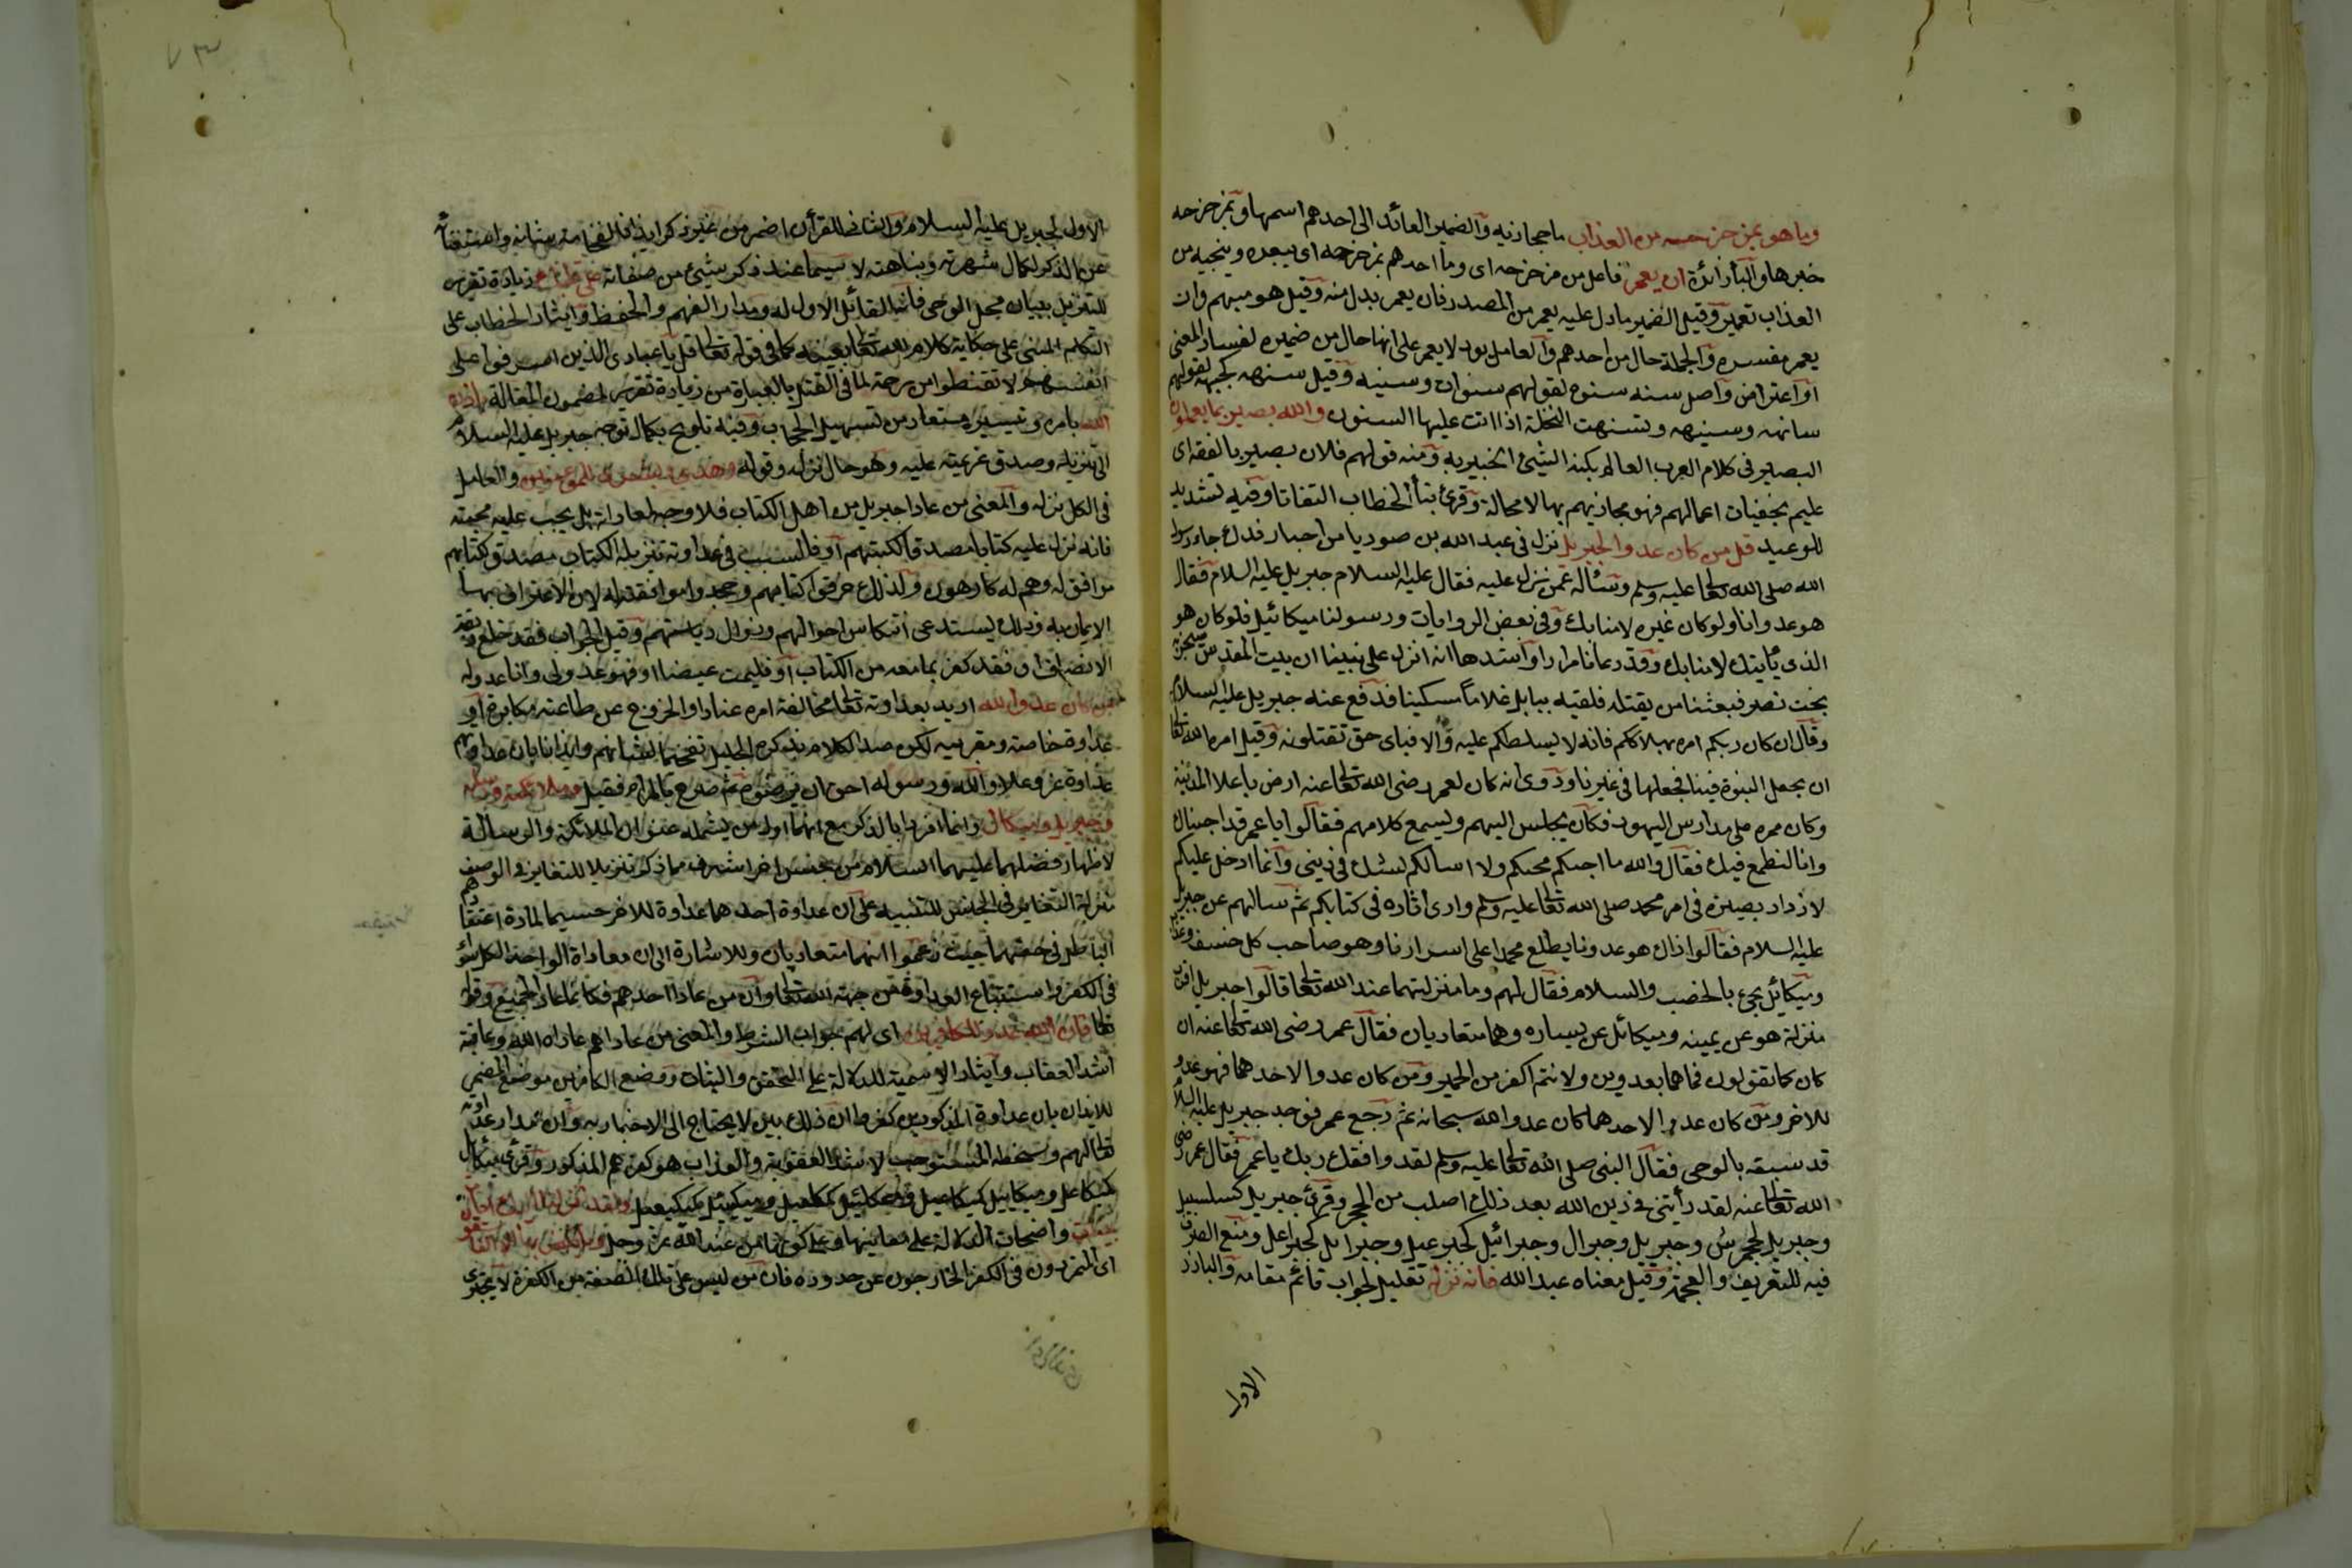 وما هو بمزحزحه من العذاب ما حجازية والضمير العائد الى احدهم اسمها وبمزحزحه
خبرها والباء زائدة ان يعمر فاعل من مزحزحه اى وما احدهم بمزحزحه اى يبعده وينجيه من
العذاب تعميره وقيل الضمير لما دل عليه يعمر من المصدر فان يعمر بدل منه وقيل هو مبهم وان
يعمر مفسره والجملة حال من احدهم والعامل يود لا يعمر على انها حال من ضميره لفساد المعنى
او اعتراض واصل سنه سنوة لقولهم سنوات وسنيه وقيل سنهه كجبهه لقولهم
سانهته وسنيهه وتسنهت النخلة اذا اتت عليها السنون والله بصير بما يعملون
البصير فى كلام العرب العالم بكنه الشئ الخبير به ومنه قولهم فلان بصير بالفقه اى
عليم بخفيات اعمالهم فهو مجازيهم بها لا محالة وقرئ بتاء الخطاب التفاتا وفيه تشديد
للوعيد قل من كان عدوا لجبريل نزل فى عبد الله بن صوريا من احبار فدك جاء رسول
الله صلى الله تعالى عليه وسلم وسأله عمن نزل عليه فقال عليه السلام جبريل عليه السلام فقال
هو عدونا ولو كان غيره لامنا بك وفى بعض الروايات ورسولنا ميكائيل فلو كان هو
الذى يأتيك لامنا بك وقد عادانا مرارا واشدها انه انزل على نبينا ان بيت المقدس سيخربه
بخت نصر فبعثنا من يقتله فلقيه ببابل غلاما مسكينا فدفع عنه جبريل عليه السلام
وقال ان كان ربكم امره بهلاككم فانه لا يسلطكم عليه والا فباى حق تقتلونه وقيل امره الله تعالى
ان يجعل النبوة فينا فجعلها فى غيرنا وروى انه كان لعمر رضى الله تعالى عنه ارض باعلا المدينة
وكان ممره على مدارس اليهود فكان يجلس اليهم ويسمع كلامهم فقالوا يا عمر قد احببناك
وانا لنطمع فيك فقال والله ما اجيكم لمحبكم ولا اسالكم لشك فى دينى وانما ادخل عليكم
لازداد بصيرة فى امر محمد صلى الله تعالى عليه وسلم وارى اثاره فى كتابكم ثم سالهم عن جبريل
عليه السلام فقالوا ذاك هو عدونا يطلع محمدا على اسرارنا وهو صاحب كل خسف وعذاب
وميكائيل يجئ بالخصب والسلام فقال لهم وما منزلتهما عند الله تعالى قالوا جبريل اقرب
منزلة هو عن يمينه وميكائل عن يساره وهما متعاديان فقال عمر رضى الله تعالى عنه ان
كان كما تقولون فما هما بعدوين ولانتم اكفر من الحمير ومن كان عدوا لاحدهما فهو عدو
للاخر ومن كان عدوا لاحدهما كان عدوا لله سبحانه ثم رجع عمر فوجد جبريل عليه السلام
قد سبقه بالوحى فقال النبى صلى الله تعالى عليه وسلم لقد وافقك ربك يا عمر فقال عمر رضى
الله تعالى عنه لقد رأيتنى فى دين الله بعد ذلك اصلب من الحجر وقرئ جبريل كسلسبيل
وجبريل كجحمرش وجبريل وجبرال وجبرائيل كجبرعيل وجبرايل كجبراعل ومنع الصرف
فيه للتعريف والعجمة وقيل معناه عبد الله فانه نزله تعليل لجواب قائم مقامه والبارز
الاول
الاول لجبريل عليه السلام والثانى للقرأن اضمر من غير ذكر ايذانا بفخامة شانه واستغنائه
عن الذكر لكمال شهرته ونباهته لا سيما عند ذكر شئ من صفاته على قلبك زيادة تقرير
للتنزيل ببيان محل الوحى فانه القائل الاول له ومدار الفهم والحفظ وايثار الخطاب على
التكلم المبنى على حكاية كلام الله تعالى بعينه كما فى قوله تعالى قل يا عبادى الذين اسرفوا على
انفسهم لا تقنطوا من رحمة لما فى النقل بالعبارة من زيادة تقرير لمضمون المقالة باذن
الله بامره وتيسيره مستعار من تسهيل الحجاب وفيه تلويح بكمال توجه جبريل عليه السلام
الى تنزيله وصدق عزيمته عليه وهو حال نزله وقوله وهدى وبشرى للمؤمنين والعامل
فى الكل نزله والمعنى من عادا جبريل من اهل الكتاب فلا وجه لمعاداته بل يجب عليه محبته
فانه نزل عليه كتابا مصدقا لكتبهم او فالسبب فى عداوته تنزيله الكتاب مصدق كتابهم
موافق له وهم له كارهون ولذلك حرفوا كتابهم وجحدوا موافقته له لان الاعتراف بها
الايمان به وذلك يستدعى انتكاس احوالهم وزوال رياستهم وقيل الجواب فقد خلع ربقة
الانصاف او فقد كفر بما معه من الكتاب او فليمت غيضا او فهو عدو لى وانا عدو له
من كان عدوا لله اريد بعداوته تعالى مخالفة امره عنادا والخروج عن طاعته مكابرة او
عداوة خاصته ومقربيه لكن صدر الكلام بذكره الجليل تفخيما لشانهم وايذانا بان عداوتهم
عداوة عز وعلا والله ورسوله احق ان يرضوه ثم صرح بالمرام فقيل وملائكته ورسله
وجبريل وميكال وانما افردا بالذكر مع انهما اول من يشمله عنوان الملائكة والرسالة
لاظهار فضلهما عليهما السلام من جنس اخر اشرف مما ذكر تنزيلا للتغاير فى الوصف
منزلة التغاير فى الجنس للتنبيه على ان عداوة احدهما عداوة للاخر حسيما لمادة اعتقادهم
الباطل فى حقهما حيث زعموا انهما متعاديان وللاشارة الى ان معاداة الواحد الكل سواء
فى الكفر واستتباع العداوة من جهة الله تعالى وان من عادا احدهم فكانما عادا الجميع وقوله
تعالى فان الله عدو للكافرين اى لهم جواب الشرط والمعنى من عاداهم عاداه الله وعاقبه
اشد العقاب وايثار الاسمية للدلالة على التحقق والثبات ووضع الكافرين موضع المضمر
للايذان بان عداوة المذكورين كفر وان ذلك بين لا يحتاج الى الاخبار به وان مدار عداوته
تعالى لهم وسخطه المستوجب لاشد العقوبة والعذاب هو كفرهم المذكور وقرئ ميكال
كميكاعل وميكاييل كميكاعيل وميكئيل كميكعيل ولقد انزلنا اليك ايات
بينات واضحات الدلالة على معانيها وعلى كونها من عند الله عز وجل وما يكفر بها الا الفاسقون
اى المتمردون فى الكفر الخارجون عن حدوده فان من ليس على تلك الصفة من الكفرة لا يجترئ